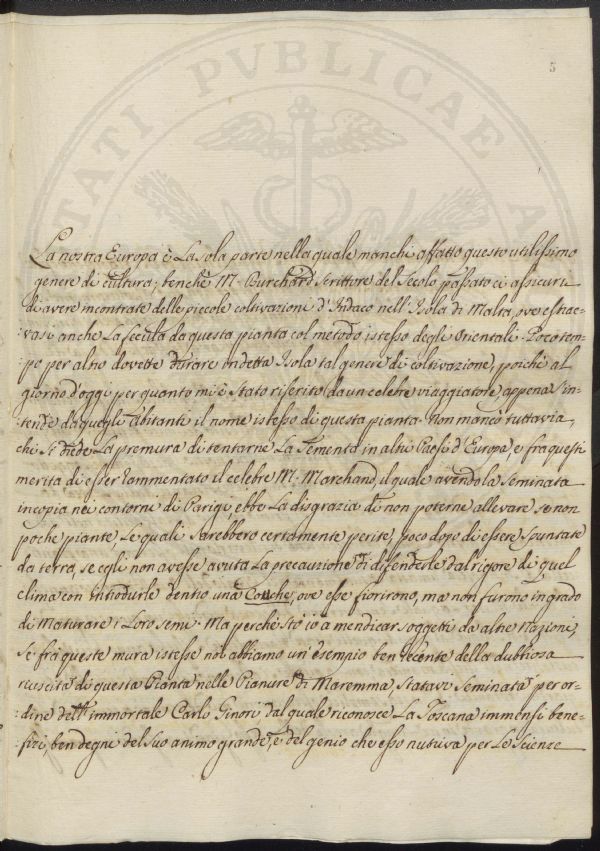 TATI PVBLICAE
5
La nostra Europa è La sola parte nella quale manchi affatto questo utilissimo
genere di cultura; benche M. Burchard Scrittore del Secolo passato ci assicuri
di avere incontrate delle piccole coltivazioni d'Indaco nell'Isola di Malta, ove estrae-
:vasi anche La fecula da questa pianta col metodo istesso degli Orientali. Poco tem-
po per altro dovette durare in detta Isola tal genere di coltivazione, poichè al
giorno d'oggi per quanto mi è stato riferito da un celebre viaggiatore, appena s'in-
:tende da quegli abitanti il nome istesso di questa pianta. Non mancò tuttavia,
chi si diede La premura di tentarne La Sementa in altri Paesi d'Europa, e fra questi
merita di esser rammentato il celebre M. Marchand, il quale avendola Seminata
in copia nei contorni di Parigi ebbe La disgrazia di non poterne allevare se non
poche piante, Le quali Sarebbero certamente perite, poco dopo di essere spuntate
da terra, se egli non avesse avuta La precauzione di difenderle dal rigore di quel
clima con introdurle dentro una Couche, ove esse fiorirono, ma non furono in grado
di maturare i Loro semi. Ma perchè stò io a mendicar soggetti da altre Nazioni,
Se frà queste mura istesse noi abbiamo un'esempio ben recente della dubbiosa
riuscita di questa Pianta nelle Pianure di Maremma, statavi Seminata per or-
:dine dell'immortale Carlo Ginori dal quale riconosce La Toscana immensi bene-
fizi, ben degni del Suo animo grande, e del genio che esso nutriva per Le Scienze